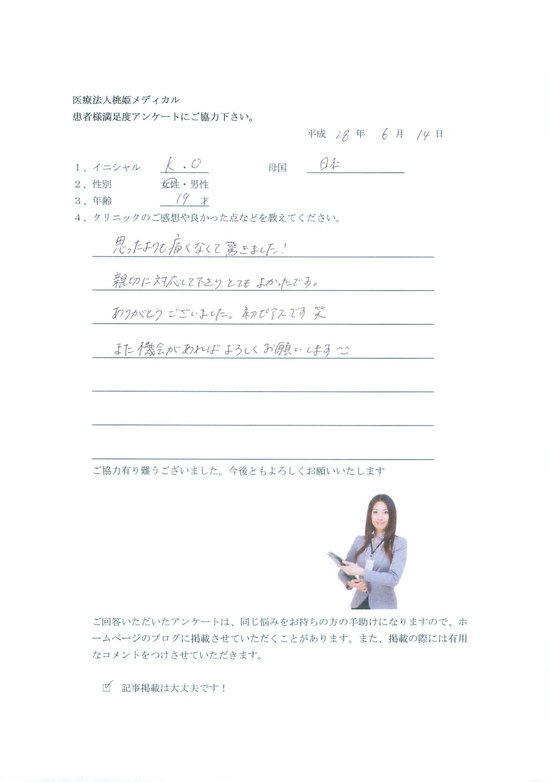 医療法人桃姫メディカル
患者様満足度アンケートにご協力下さい。
平成 28 年 6 月 14 日
1、イニシャル K.O 母国 日本
2、性別 女性・男性
3、年齢 19 才
4、クリニックのご感想や良かった点などを教えてください。
思ったよりも痛くなくて驚きました!
親切に対応して下さりとてもよかったです。
ありがとうございました。初ピアスです 笑
また機会があればよろしくお願いします
ご協力有り難うございました。今後ともよろしくお願いいたします
ご回答いただいたアンケートは、同じ悩みをお持ちの方の手助けになりますので、ホ
ームページのブログに掲載させていただくことがあります。また、掲載の際には有用
なコメントをつけさせていただきます。
☑ 記事掲載は大丈夫です!